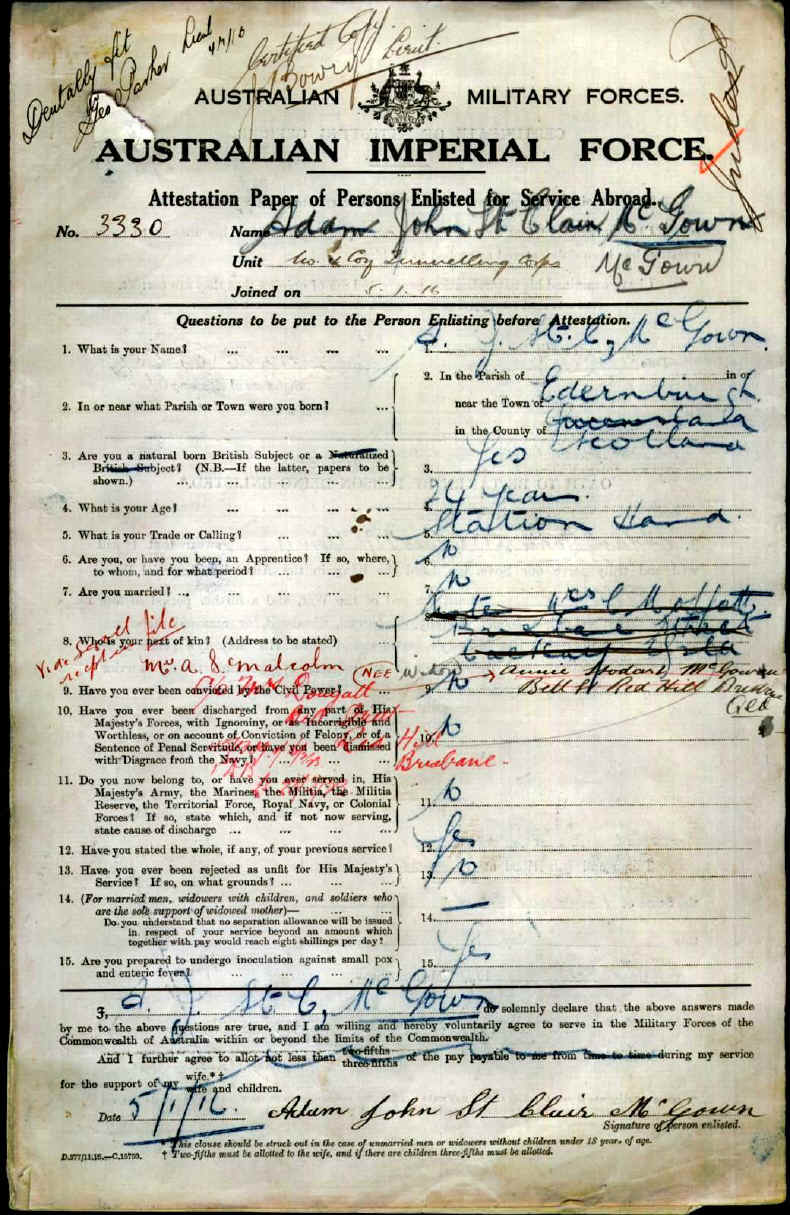 Dentally fit
Geo Parker Lieut
Certified Copy.
J Gowry Lieut.
Indexed
AUSTRALIAN MILITARY FORCES.
AUSTRALIAN IMPERIAL FORCE.
Attestation Paper of Persons Enlisted for Service Abroad.
No. 3330 Name Adam John St Clair McGown
McGown
Unit No. Coy Tunnelling Corps
Joined on 5.1.16
Questions to be put to the Person Enlisting before Attestation.
1. What is your Name? ... ... ... ... 1. A. J. St. C. McGown.
2. In or near what Parish or Town were you born? ... 2. In the Parish of in or
near the Town of Edernburgh.
in the County of Queensland
Scotland
3. Are you a natural born British Subject or a Naturalized
British Subject? (N.B.—If the latter, papers to be
shown.) ... ... ... ... 3. Yes
4. What is your Age? ... ... ... ... 4. 24 years.
5. What is your Trade or Calling? ... ... ... 5. Station Hand.
6. Are you, or have you been, an Apprentice? If so, where,
to whom, and for what period? ... ... ... 6. No
7. Are you married? ... ... ... ... 7. No
8. Who is your next of kin? (Address to be stated) 8. Sister Mrs C Moffatt.
Vide
file
Mrs. A. S. Malcolm (NEE Annie Stodart McGown
Bell St Red Hill Brisbane
Qld
9. Have you ever been convicted by the Civil Power? ... 9. No
10. Have you ever been discharged from any part of His
Majesty's Forces, with Ignominy, or as Incorrigible and
Worthless, or on account of Conviction of Felony, or of a
Sentence of Penal Servitude, or have you been dismissed
with Disgrace from the Navy? ... ... ... 10. No
Red Hill
Brisbane.
11. Do you now belong to, or have you ever served in, His
Majesty's Army, the Marines, the Militia, the Militia
Reserve, the Territorial Force, Royal Navy, or Colonial
Forces? If so, state which, and if not now serving,
state cause of discharge ... ... ... ... 11. No
12. Have you stated the whole, if any, of your previous service? 12. Yes
13. Have you ever been rejected as unfit for His Majesty's
Service? If so, on what grounds? ... ... ... 13. No
14. (For married men, widowers with children, and soldiers who
are the sole support of widowed mother)— ... ...
Do you understand that no separation allowance will be issued
in respect of your service beyond an amount which
together with pay would reach eight shillings per day? 14. —
15. Are you prepared to undergo inoculation against small pox
and enteric fever? ... ... ... ... 15. Yes
I, A. J. St. C. McGown do solemnly declare that the above answers made
by me to the above questions are true, and I am willing and hereby voluntarily agree to serve in the Military Forces of the
Commonwealth of Australia within or beyond the limits of the Commonwealth.
And I further agree to allot not less than two-fifths three-fifths of the pay payable to me from time to time during my service
for the support of my wife.*† wife and children.
Date 5/1/16. Adam John St Clair McGown
Signature of person enlisted.
* This clause should be struck out in the case of unmarried men or widowers without children under 18 years of age.
D.977/11.15.—C.15750. † Two-fifths must be allotted to the wife, and if there are children three-fifths must be allotted.